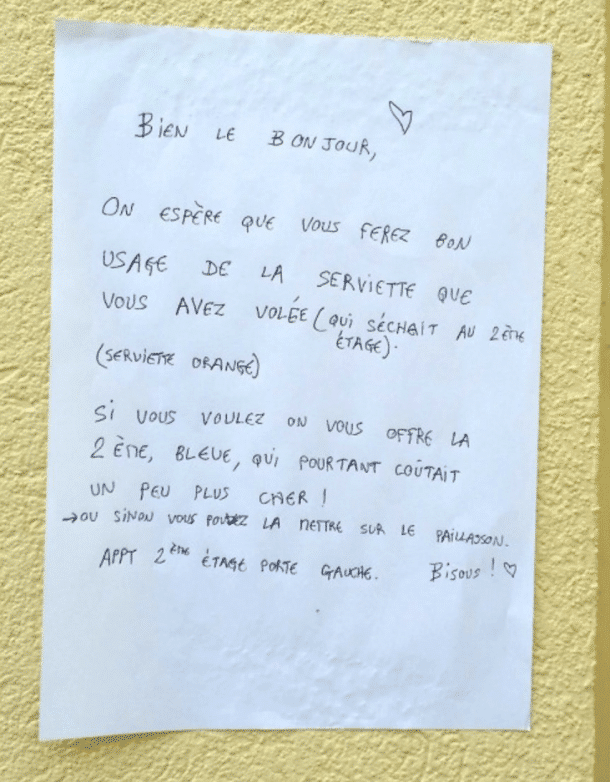 BIEN LE BONJOUR, ♡
ON ESPÈRE QUE VOUS FEREZ BON
USAGE DE LA SERVIETTE QUE
VOUS AVEZ VOLÉE (QUI SÉCHAIT AU 2ÈME
ÉTAGE).
(SERVIETTE ORANGE)
SI VOUS VOULEZ ON VOUS OFFRE LA
2 ÈME, BLEUE, QUI POURTANT COÛTAIT
UN PEU PLUS CHER !
→OU SINON VOUS POUVEZ LA METTRE SUR LE PAILLASSON.
APPT 2ÈME ÉTAGE PORTE GAUCHE. BISOUS ! ♡